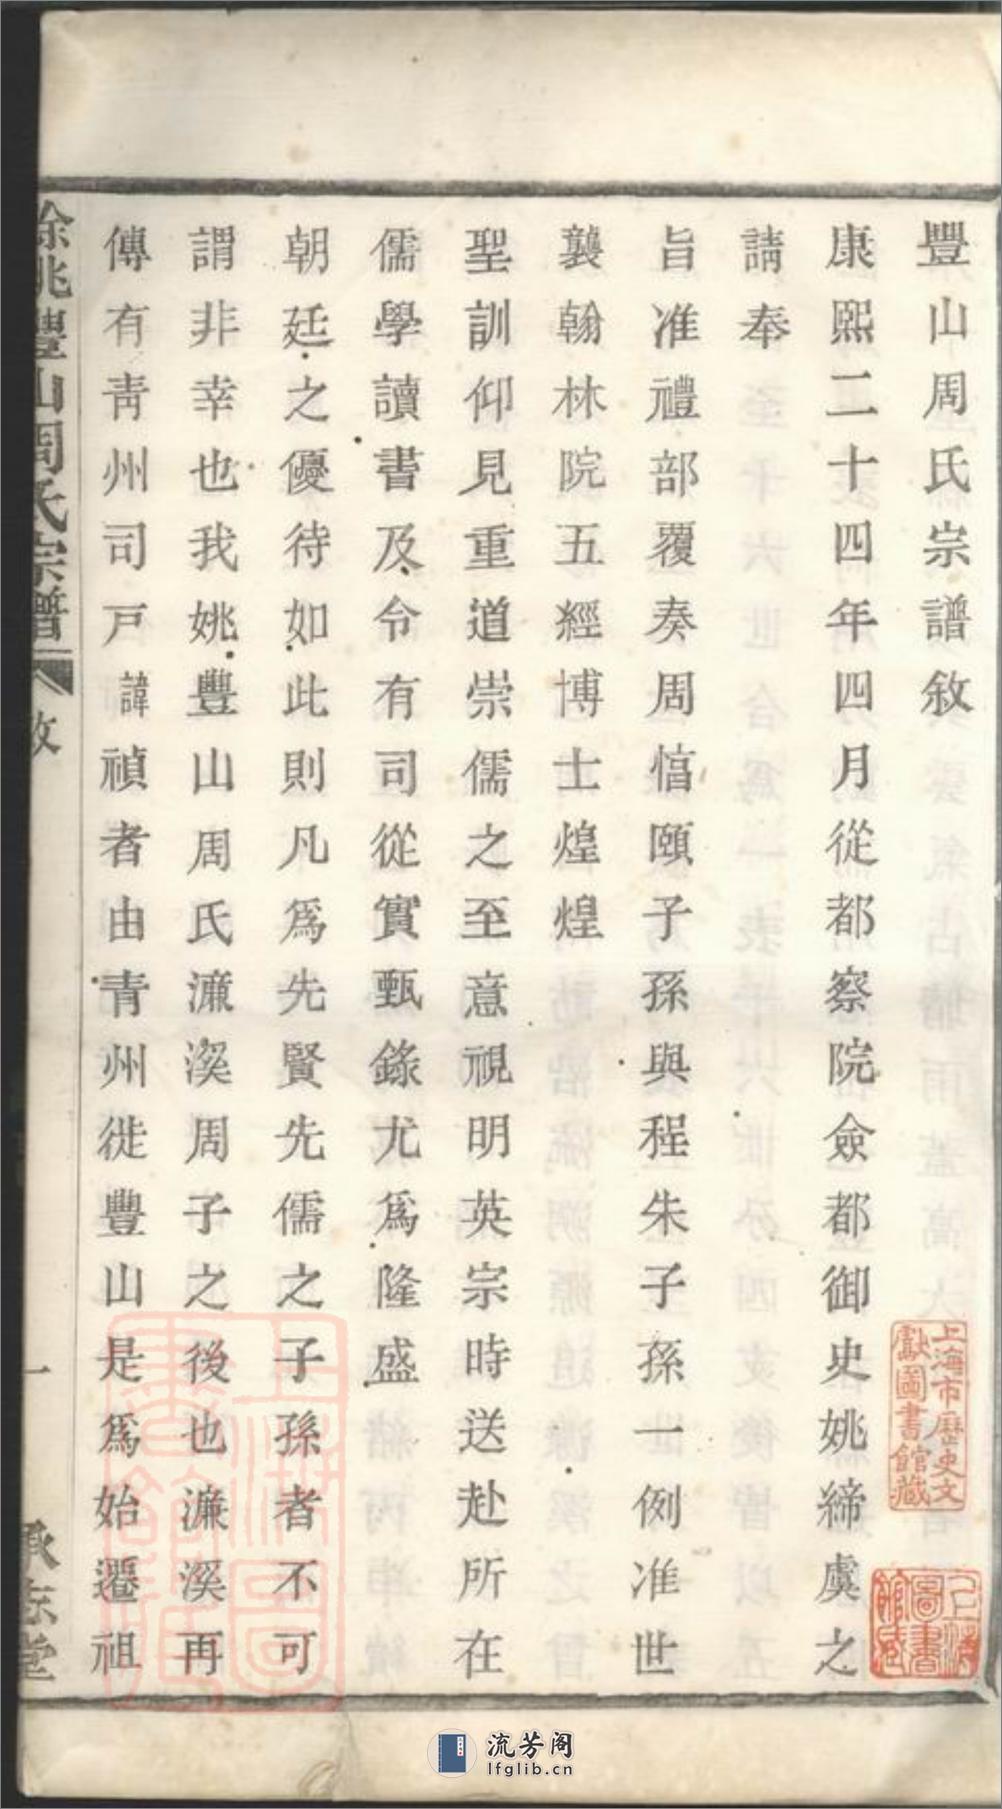 豐山周氏宗譜敘
康熙二十四年四月從都察院僉都御史姚締虞之
請奉
旨准禮部覆奏周惇頤子孫與程朱子孫一例准世
襲翰林院五經博士煌煌
聖訓仰見重道崇儒之至意視明英宗時送赴所在
儒學讀書及令有司從實甄錄尤爲隆盛
朝廷之優待如此則凡爲先賢先儒之子孫者不可
謂非幸也我姚豐山周氏濂溪周子之後也濂溪再
傳有靑州司戸諱禎者由青州徙豐山是爲始遷祖
餘姚豐山周氏宗譜
敘
一
承志堂
上海市歷史文
獻圖書館藏
上海
圖書
館藏
流芳阁
lfglib.cn